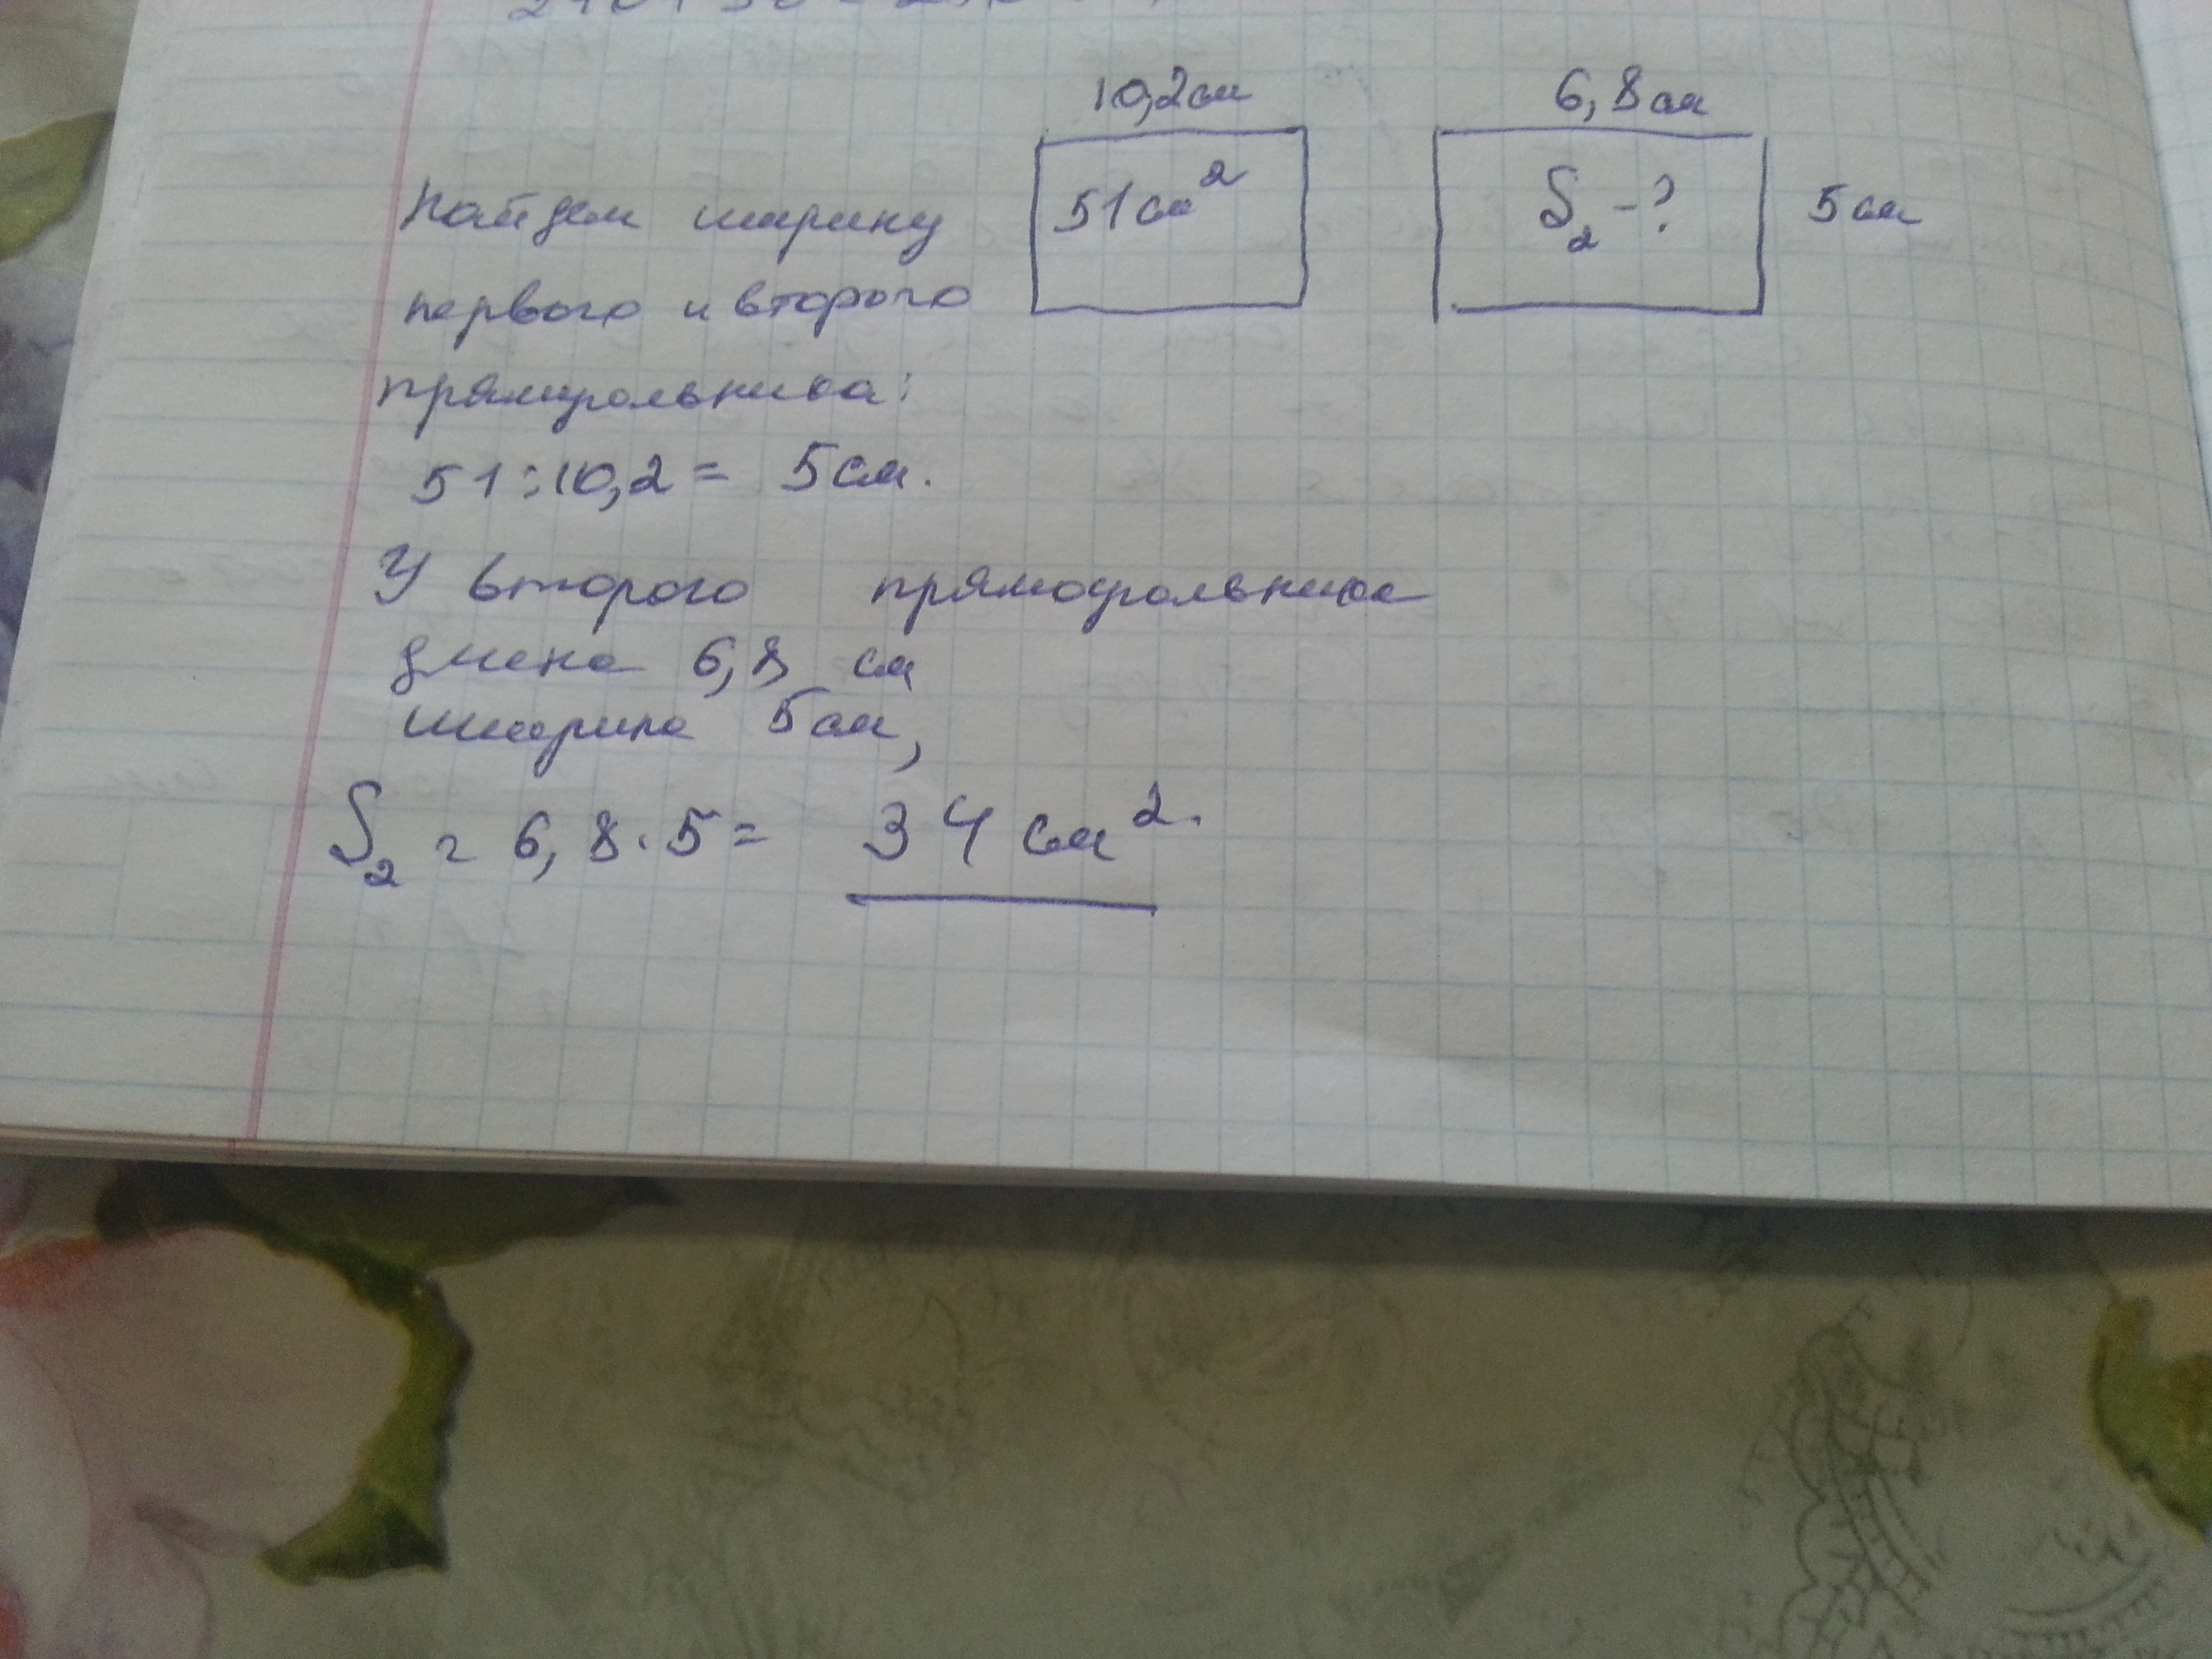 10,2см 6,8см
Найдем ширину 51см² S₂-? 5см
первого и второго
прямоугольника:
51:10,2= 5см.
У второго прямоугольника
длина 6,8 см
ширина 5см,
S₂ = 6,8·5= 34 см².